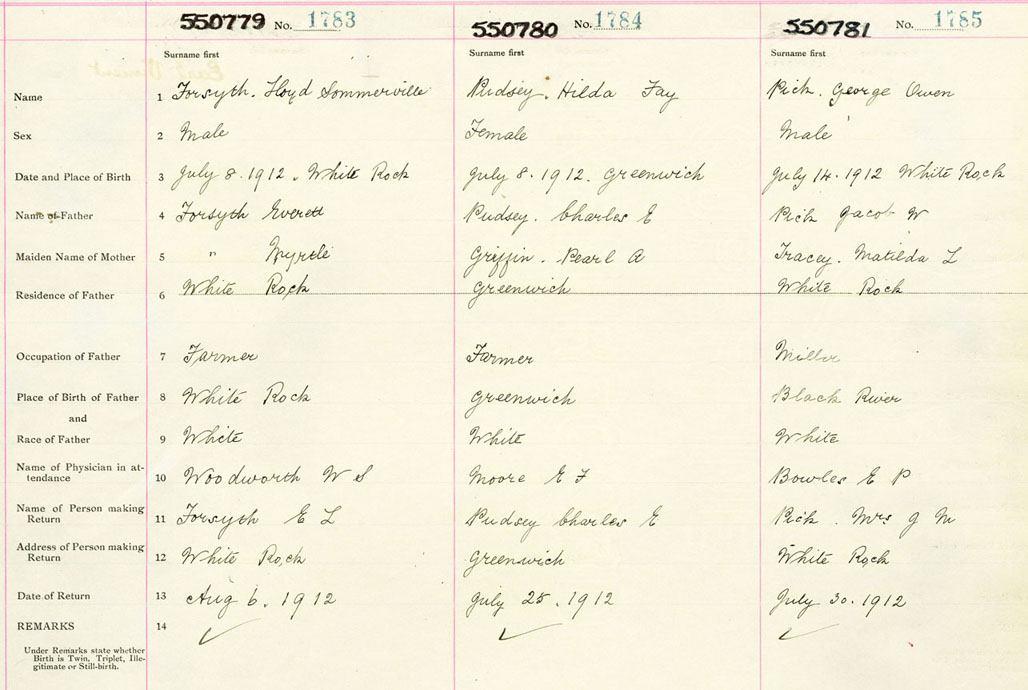 550779 No. 1783 550780 No. 1784 550781 No. 1785
Surname first Surname first Surname first
Name 1 Forsyth. Lloyd Sommerville Pudsey. Hilda Fay Pick. George Owen
Sex 2 Male Female Male
Date and Place of Birth 3 July 8. 1912. White Rock July 8. 1912. Greenwich July 14. 1912 White Rock
Name of Father 4 Forsyth Everett Pudsey. Charles E Pick Jacob W
Maiden Name of Mother 5 " Myrtle Griffin. Pearl A Tracey. Matilda L
Residence of Father 6 White Rock Greenwich White Rock
Occupation of Father 7 Farmer Farmer Miller
Place of Birth of Father 8 White Rock Greenwich Black River
and
Race of Father 9 White White White
Name of Physician in at-
tendance 10 Woodworth W S Moore E F Bowles E P
Name of Person making
Return 11 Forsyth E L Pudsey Charles E Pick. Mrs J M
Address of Person making
Return 12 White Rock Greenwich White Rock
Date of Return 13 Aug 6. 1912 July 25. 1912 July 30. 1912
REMARKS 14
Under Remarks state whether
Birth is Twin, Triplet, Ille-
gitimate or Still-birth.